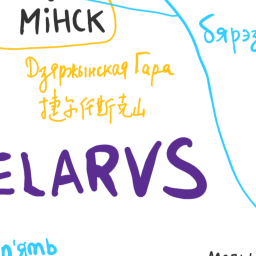 МіНСК
бярэз
Дзяржынская Гара
捷尔任斯克山
ELARVS
п'яць